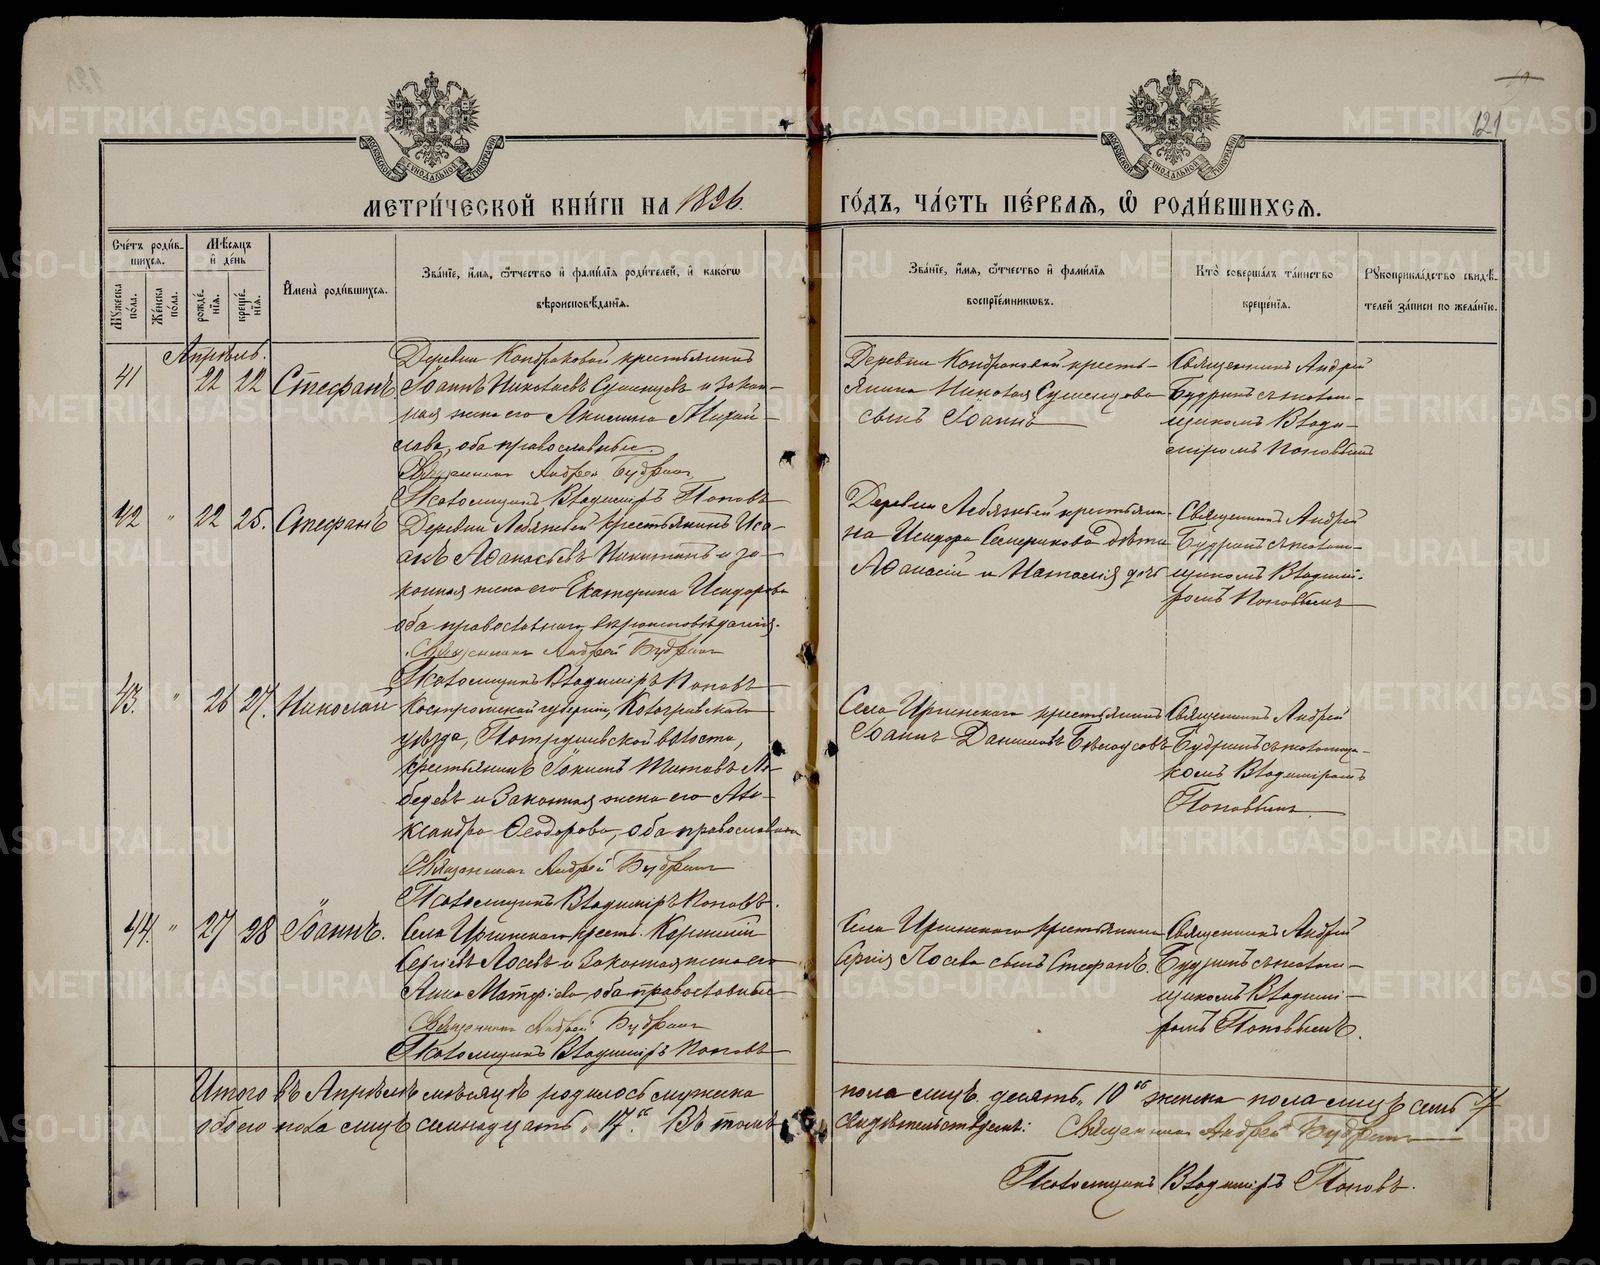 121
МОСКОВСКОЙ СѴНОДАЛЬНОЙ ТИПОГРАФІИ
МОСКОВСКОЙ СѴНОДАЛЬНОЙ ТИПОГРАФІИ
МЕТРИ́ЧЕСКОЙ КНИ́ГИ НА 1896. ГО́ДЪ, ЧА́СТЬ ПЕ́РВАѦ, Ѽ РОДИ́ВШИХСѦ.
Сче́тъ роди́в-
шихсѧ.
Мꙋ́жеска по́ла.
Же́нска по́ла.
Мѣ́сѧцъ
и҆ де́нь
рожде́нїѧ.
креще́нїѧ.
И҆мена̀ роди́вшихсѧ.
Зва́нїе, и҆́мѧ, ѻ҆́тчество и҆ фами́лїѧ роди́телей, и҆ како́гѡ
вѣроисповѣ́данїѧ.
Зва́нїе, и҆́мѧ, ѻ҆́тчество и҆ фами́лїѧ
воспрїе́мникѡвъ.
Кто̀ соверша́лъ та́инство
креще́нїѧ.
Рꙋкоприкла́дство свидѣ́-
телей за́писи по жела́нїю.
Апрѣль.
41 22 22 Стефанъ
Деревни Кондраковой крестьянинъ
Іоаннъ Николаевъ и закон-
ная жена его Акилина Михай-
лова, оба православные.
Священникъ Андрей Будринъ
Псаломщикъ Владиміръ Поповъ
Деревни Кондраковой кресть-
янина Николая сынъ Іоаннъ
Священникъ Андрей
Будринъ съ псалом-
щикомъ Влади-
міромъ Поповымъ
42 " 22 25. Стефанъ
Деревни Лебяжьей крестьянинъ Иса-
акъ Аѳанасьевъ Никитинъ и за-
конная жена его Екатерина Исидорова
оба православнаго вѣроисповѣданія.
Священникъ Андрей Будринъ
Псаломщикъ Владиміръ Поповъ
Деревни Лебяжьей крестьяни-
на Исидора Семерикова дѣти
Аѳанасій и Наталія дочь
Священникъ Андрей
Будринъ съ псалом-
щикомъ Владимі-
ромъ Поповымъ
43. " 26 27. Николай
Костромской губерніи, Кологривскаго
уѣзда, волости,
крестьянинъ Титовъ Ле-
бедевъ и законная жена его Але-
ксандра Ѳеодорова, оба православные
Священникъ Андрей Будринъ
Псаломщикъ Владиміръ Поповъ.
Села Иргинскаго крестьянинъ
Іоаннъ Даниловъ Бѣлоусовъ
Священникъ Андрей
Будринъ съ псаломщи-
комъ Владиміромъ
Поповымъ
44. " 27 28 Іоаннъ.
Села Иргинскаго крест. Корнилій
Сергіевъ Лосевъ и законная жена его
Анна Матѳіева, оба православные
Священникъ Андрей Будринъ
Псаломщикъ Владиміръ Поповъ
Села Иргинскаго крестьянина
Сергія Лосева сынъ Стефанъ.
Священникъ Андрей
Будринъ съ псалом-
щикомъ Владимі-
ромъ Поповымъ.
Итого въ Апрѣлѣ мѣсяцѣ родилось мужска пола лицъ десять „10“ женска пола лицъ семь 7
обоего пола лицъ семнадцать „17.“ Въ томъ свидѣтельствуемъ: Священникъ Андрей Будринъ
Псаломщикъ Владиміръ Поповъ.
METRIKI.GASO-URAL.RU